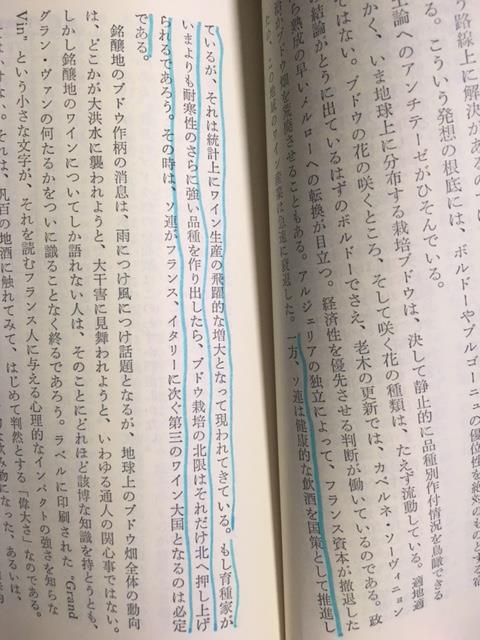 う路線上に解決があ
る。こういう発想の根底には、ボルドーやブルゴーニュの優位性を絶対のものとみる
主論へのアンチテーゼがひそんでいる。
かく、いま地球上に分布する栽培ブドウは、決して静止的に品種別作付情況を鳥瞰できる
ではない。ブドウの花の咲くところ、そして咲く花の種類は、たえず流動している。適地適
結論がとうに出ているはずのボルドーでさえ、老木の更新では、カベルネ・ソーヴィニョン
ら熟成の早いメルローへの転換が目立つ。経済性を優先させる判断が働いているのである。政
がブドウ畑を荒廃させることもある。アルジェリアの独立によって、フランス資本が撤退した
ため、この地域のワイン産業は急速に衰退した。一方、ソ連は健康的な飲酒を国策として推進し
ているが、それは統計上にワイン生産の飛躍的な増大となって現われてきている。もし育種家が
いまよりも耐寒性のさらに強い品種を作り出したら、ブドウ栽培の北限はそれだけ北へ押し上げ
られるであろう。その時は、ソ連が、フランス、イタリーに次ぐ第三のワイン大国となるのは必定
である。
銘醸地のブドウ作柄の消息は、雨につけ風につけ話題となるが、地球上のブドウ畑全体の動向
は、どこかが大洪水に襲われようと、大干害に見舞われようと、いわゆる通人の関心事ではない。
しかし銘醸地のワインについてしか語れない人は、そのことにどれほど該博な知識を持とうとも、
グラン・ヴァンの何たるかをついに識ることなく終るであろう。ラベルに印刷された "Grand
Vin" という小さな文字が、それを読むフランス人に与える心理的なインパクトの強さを知らな
ければ、それは、凡百の地酒に触れてみて、はじめて判然とする「偉大さ」なのである。
な飲み物になった、あるいは、